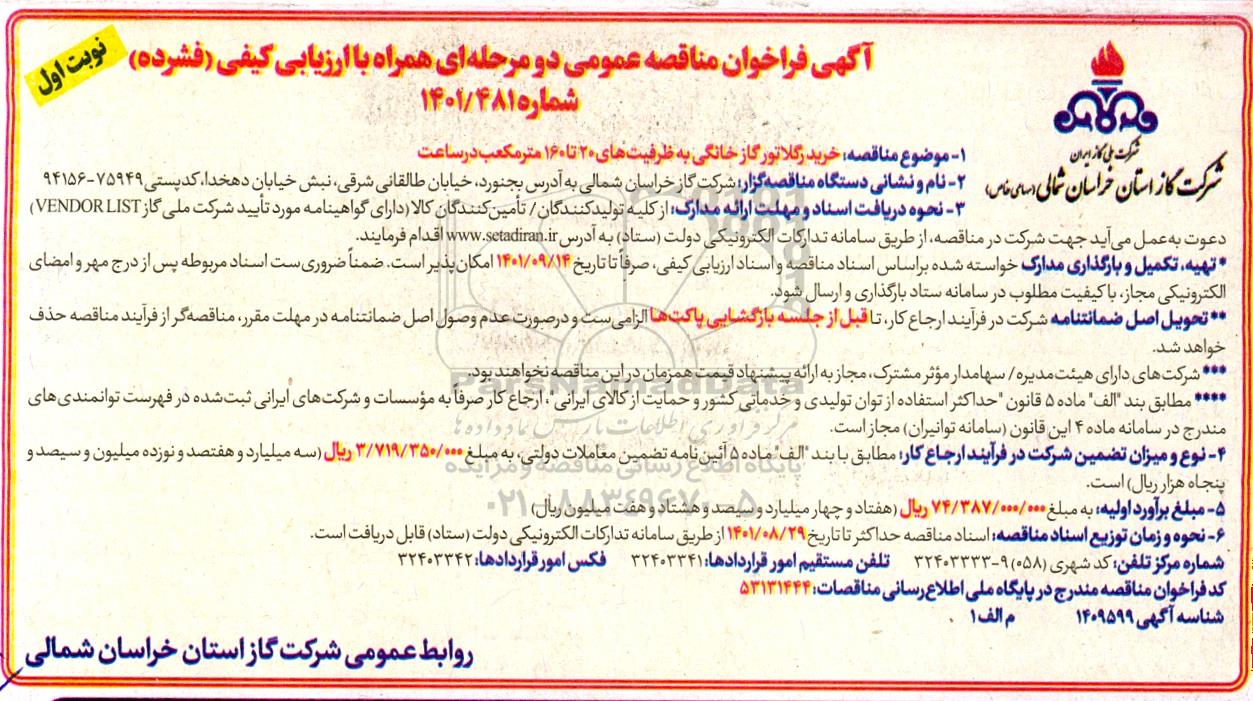 نوبت اول
آگهی فراخوان مناقصه عمومی دو مرحله‌ای همراه با ارزیابی کیفی (فشرده)
شماره ۱۴۰۱/۴۸۱
شرکت ملی گاز ایران
شرکت گاز استان خراسان شمالی (سهامی خاص)
۱- موضوع مناقصه: خرید رگلاتور گاز خانگی به ظرفیت‌های ۲۰ تا ۱۶۰ مترمکعب در ساعت
۲- نام و نشانی دستگاه مناقصه‌گزار: شرکت گاز خراسان شمالی به آدرس بجنورد، خیابان طالقانی شرقی، نبش خیابان دهخدا، کدپستی ۷۵۹۴۹-۹۴۱۵۶
۳- نحوه دریافت اسناد و مهلت ارائه مدارک: از کلیه تولیدکنندگان/ تأمین‌کنندگان کالا (دارای گواهینامه مورد تأیید شرکت ملی گاز VENDOR LIST)
دعوت به‌عمل می‌آید جهت شرکت در مناقصه، از طریق سامانه تدارکات الکترونیکی دولت (ستاد) به آدرس www.setadiran.ir اقدام فرمایند.
* تهیه، تکمیل و بارگذاری مدارک خواسته شده براساس اسناد مناقصه و اسناد ارزیابی کیفی، صرفاً تا تاریخ ۱۴۰۱/۰۹/۱۴ امکان‌پذیر است. ضمناً ضروری‌ست اسناد مربوطه پس از درج مهر و امضای
الکترونیکی مجاز، با کیفیت مطلوب در سامانه ستاد بارگذاری و ارسال شود.
** تحویل اصل ضمانتنامه شرکت در فرآیند ارجاع کار، تا قبل از جلسه بازگشایی پاکت‌ها الزامی‌ست و درصورت عدم وصول اصل ضمانتنامه در مهلت مقرر، مناقصه‌گر از فرآیند مناقصه حذف
خواهد شد.
*** شرکت‌های دارای هیئت‌مدیره/ سهامدار مؤثر مشترک، مجاز به ارائه پیشنهاد قیمت همزمان در این مناقصه نخواهند بود.
**** مطابق بند "الف" ماده ۵ قانون "حداکثر استفاده از توان تولیدی و خدماتی کشور و حمایت از کالای ایرانی"، ارجاع کار صرفاً به مؤسسات و شرکت‌های ایرانی ثبت‌شده در فهرست توانمندی‌های
مندرج در سامانه ماده ۴ این قانون (سامانه توانیران) مجاز است.
۴- نوع و میزان تضمین شرکت در فرآیند ارجاع کار: مطابق با بند "الف" ماده ۵ آئین‌نامه تضمین معاملات دولتی، به مبلغ ۳/۷۱۹/۳۵۰/۰۰۰ ریال (سه میلیارد و هفتصد و نوزده میلیون و سیصد و
پنجاه هزار ریال) است.
۵- مبلغ برآورد اولیه: به مبلغ ۷۴/۳۸۷/۰۰۰/۰۰۰ ریال (هفتاد و چهار میلیارد و سیصد و هشتاد و هفت میلیون ریال)
۶- نحوه و زمان توزیع اسناد مناقصه: اسناد مناقصه حداکثر تا تاریخ ۱۴۰۱/۰۸/۲۹ از طریق سامانه تدارکات الکترونیکی دولت (ستاد) قابل دریافت است.
شماره مرکز تلفن: کد شهری (۰۵۸) ۹-۳۲۴۰۳۳۳۳ تلفن مستقیم امور قراردادها: ۳۲۴۰۳۳۴۱ فکس امور قراردادها: ۳۲۴۰۳۳۴۲
کد فراخوان مناقصه مندرج در پایگاه ملی اطلاع‌رسانی مناقصات: ۵۳۱۳۱۴۴۴
شناسه آگهی ۱۴۰۹۵۹۹ م الف ۱
روابط عمومی شرکت گاز استان خراسان شمالی
ParsNamadData
مرکز فرآوری اطلاعات پارس نماد داده‌ها
پایگاه اطلاع رسانی مناقصه و مزایده
۰۲۱-۸۸۳۴۹۶۷۰-۵